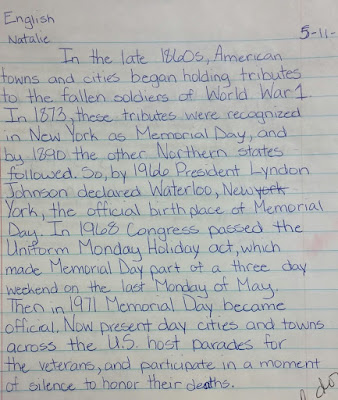 English
Natalie
5-11-
In the late 1860s, American
towns and cities began holding tributes
to the fallen soldiers of World War 1.
In 1873, these tributes were recognized
in New York as Memorial Day, and
by 1890 the other Northern states
followed. So, by 1966 President Lyndon
Johnson declared Waterloo, New york
York, the official birthplace of Memorial
Day. In 1968 Congress passed the
Uniform Monday Holiday act, which
made Memorial Day part of a three day
weekend on the last Monday of May.
Then in 1971 Memorial Day became
official. Now present day cities and towns
across the U.S. host parades for
the veterans, and participate in a moment
of silence to honor their deaths.